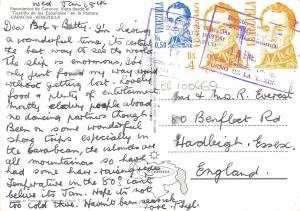 Wed Jan 18th
Panorámica de Caracas, Vista desde el
"Castillo de las Estrellas" en la Pastora
CARACAS - VENEZUELA
Dear Bob & Betty. I'm having
a wonderful time, its certainly
the best way to see the world
The ship is enormous, its
only just found my way around
without getting lost. Lovely
food & plenty of entertainment
mostly elderly people aboard
no dancing partners though.
Been on some wonderful
shore trips especially in
the Carabean, the islands are
all mountainous so have
had some hair-raising rides
Temperature in the 80's can't
believe its Jan. Hope its not
too cold there. Haven't been seasick
love
VENEZUELA
0,50
VENEZUELA
Mr & Mrs R. Everest
80 Benfleet Rd
Hadleigh, Essex,
England.